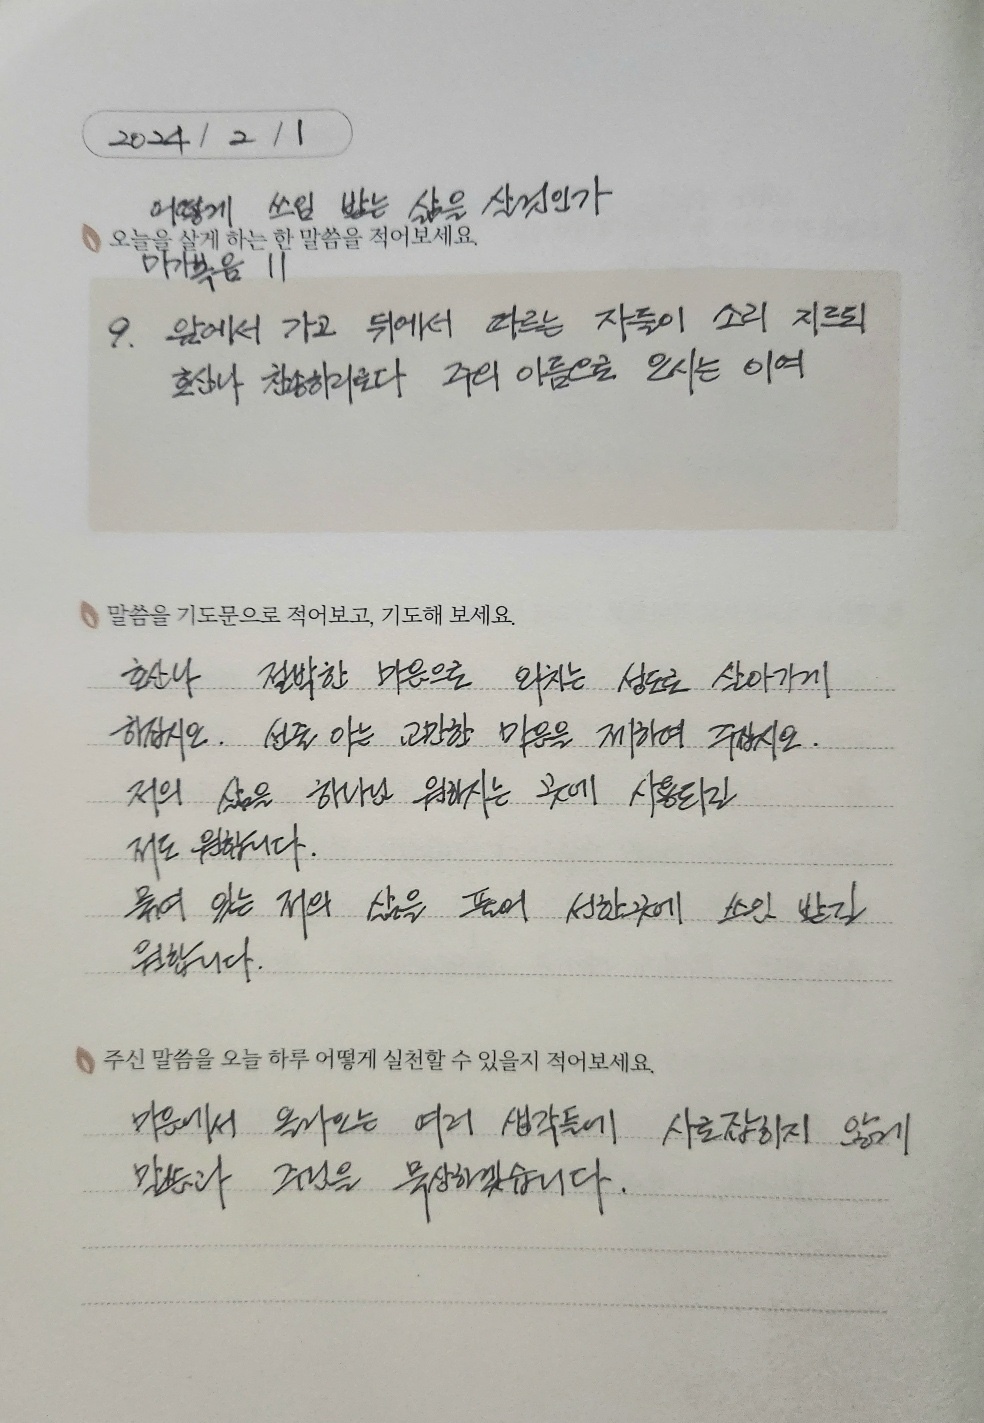 2024 / 2 / 1
어떻게 쓰임 받는 삶을 살것인가
오늘을 살게 하는 한 말씀을 적어보세요.
마가복음 11
9. 앞에서 가고 뒤에서 따르는 자들이 소리 지르되
호산나 찬송하리로다 주의 이름으로 오시는 이여
말씀을 기도문으로 적어보고, 기도해 보세요.
호산나 절박한 마음으로 외치는 성도로 살아가게
하십시오. 선줄 아는 교만한 마음을 제하여 주십시오.
저의 삶을 하나님 원하시는 곳에 사용되길
저도 원합니다.
묶여 있는 저의 삶을 풀어 선한곳에 쓰임 받길
원합니다.
주신 말씀을 오늘 하루 어떻게 실천할 수 있을지 적어보세요.
마음에서 올라오는 여러 생각들에 사로잡히지 않게
말씀과 주님을 묵상하겠습니다.